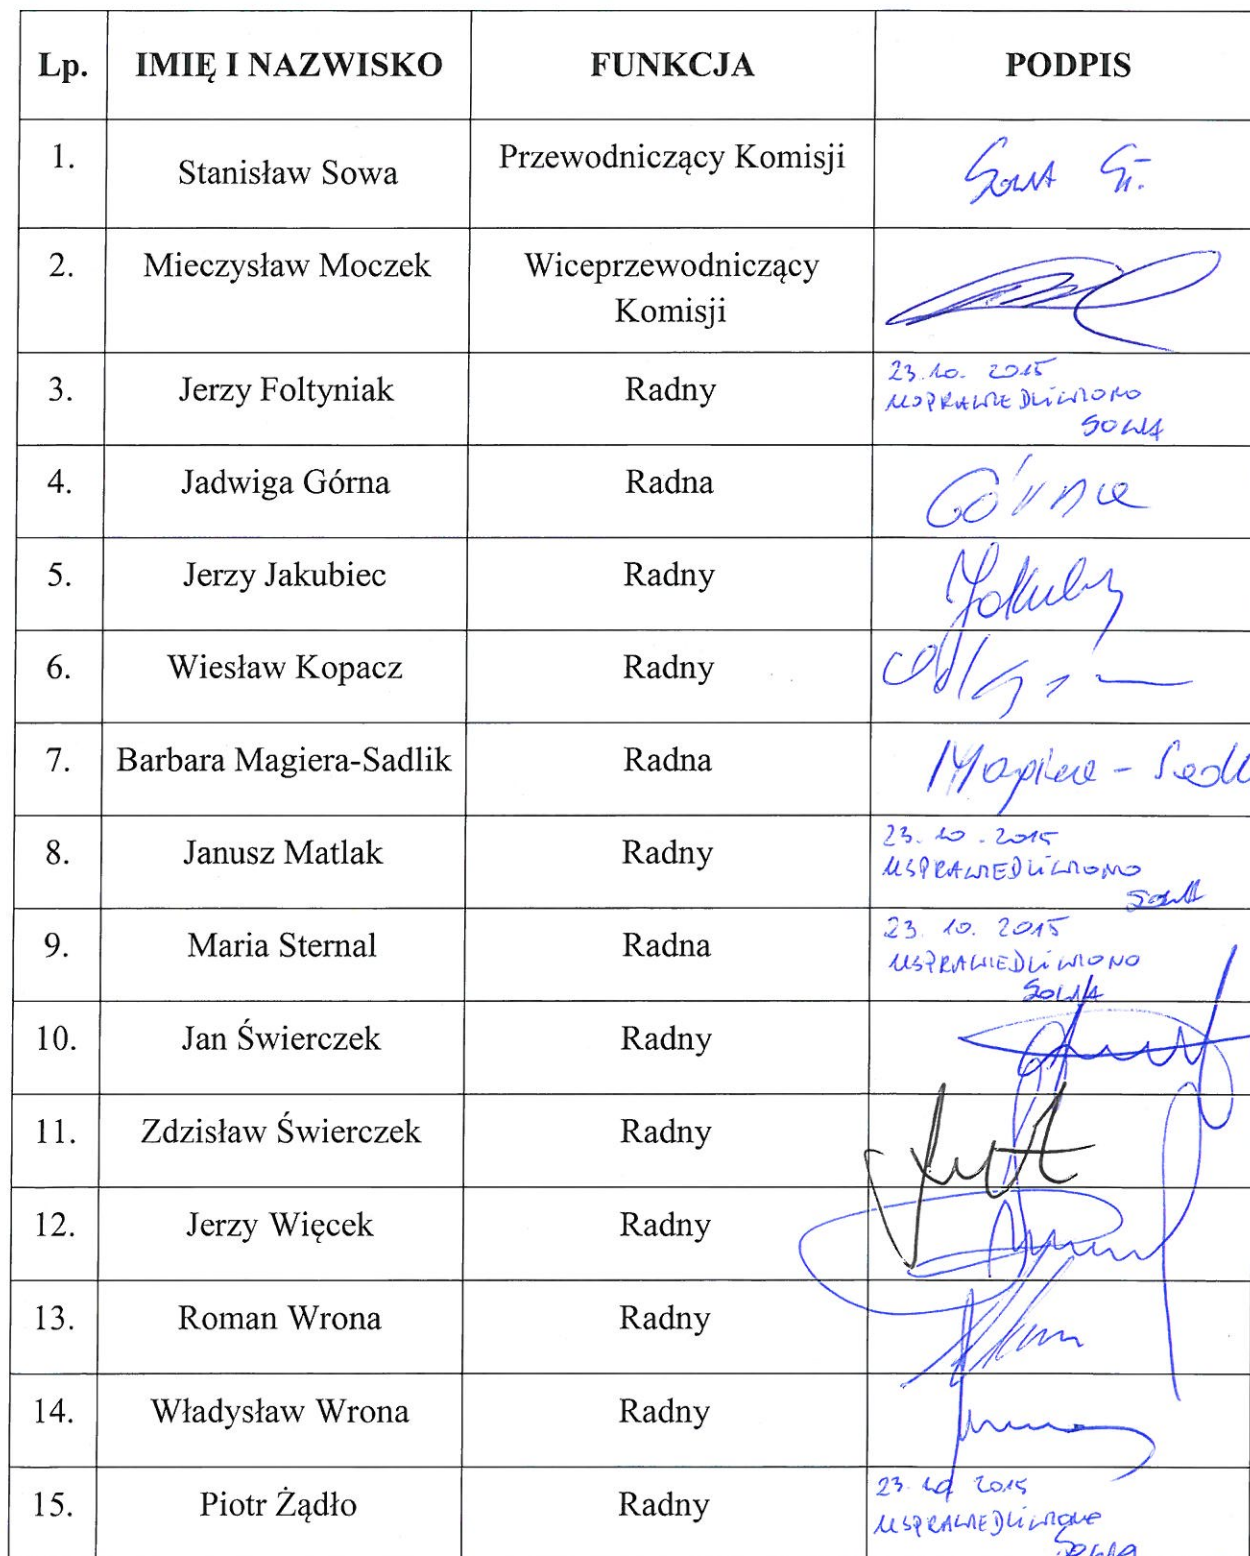 Lp. IMIĘ I NAZWISKO FUNKCJA PODPIS
1. Stanisław Sowa Przewodniczący Komisji Sowa St.
2. Mieczysław Moczek Wiceprzewodniczący
Komisji
3. Jerzy Foltyniak Radny 23.10. 2015
USPRAWIEDLIWIONO
SOWA
4. Jadwiga Górna Radna Górna
5. Jerzy Jakubiec Radny
6. Wiesław Kopacz Radny
7. Barbara Magiera-Sadlik Radna Magiera - Sadl
8. Janusz Matlak Radny 23. 10. 2015
USPRAWIEDLIWIONO
SOWA
9. Maria Sternal Radna 23. 10. 2015
USPRAWIEDLIWIONO
SOWA
10. Jan Świerczek Radny
11. Zdzisław Świerczek Radny
12. Jerzy Więcek Radny
13. Roman Wrona Radny
14. Władysław Wrona Radny
15. Piotr Żądło Radny 23.10 2015
USPRAWIEDLIWIONO
SOWA